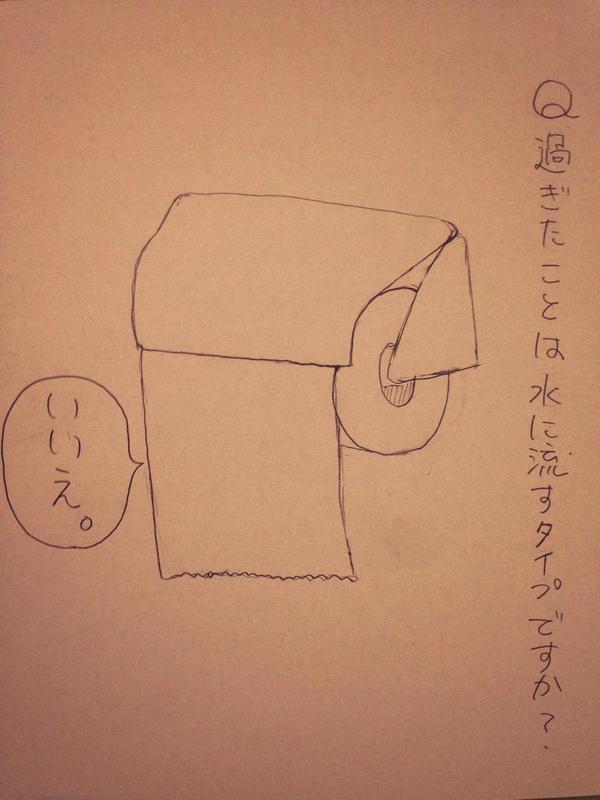 Q過ぎたことは水に流すタイプですか？
いいえ。